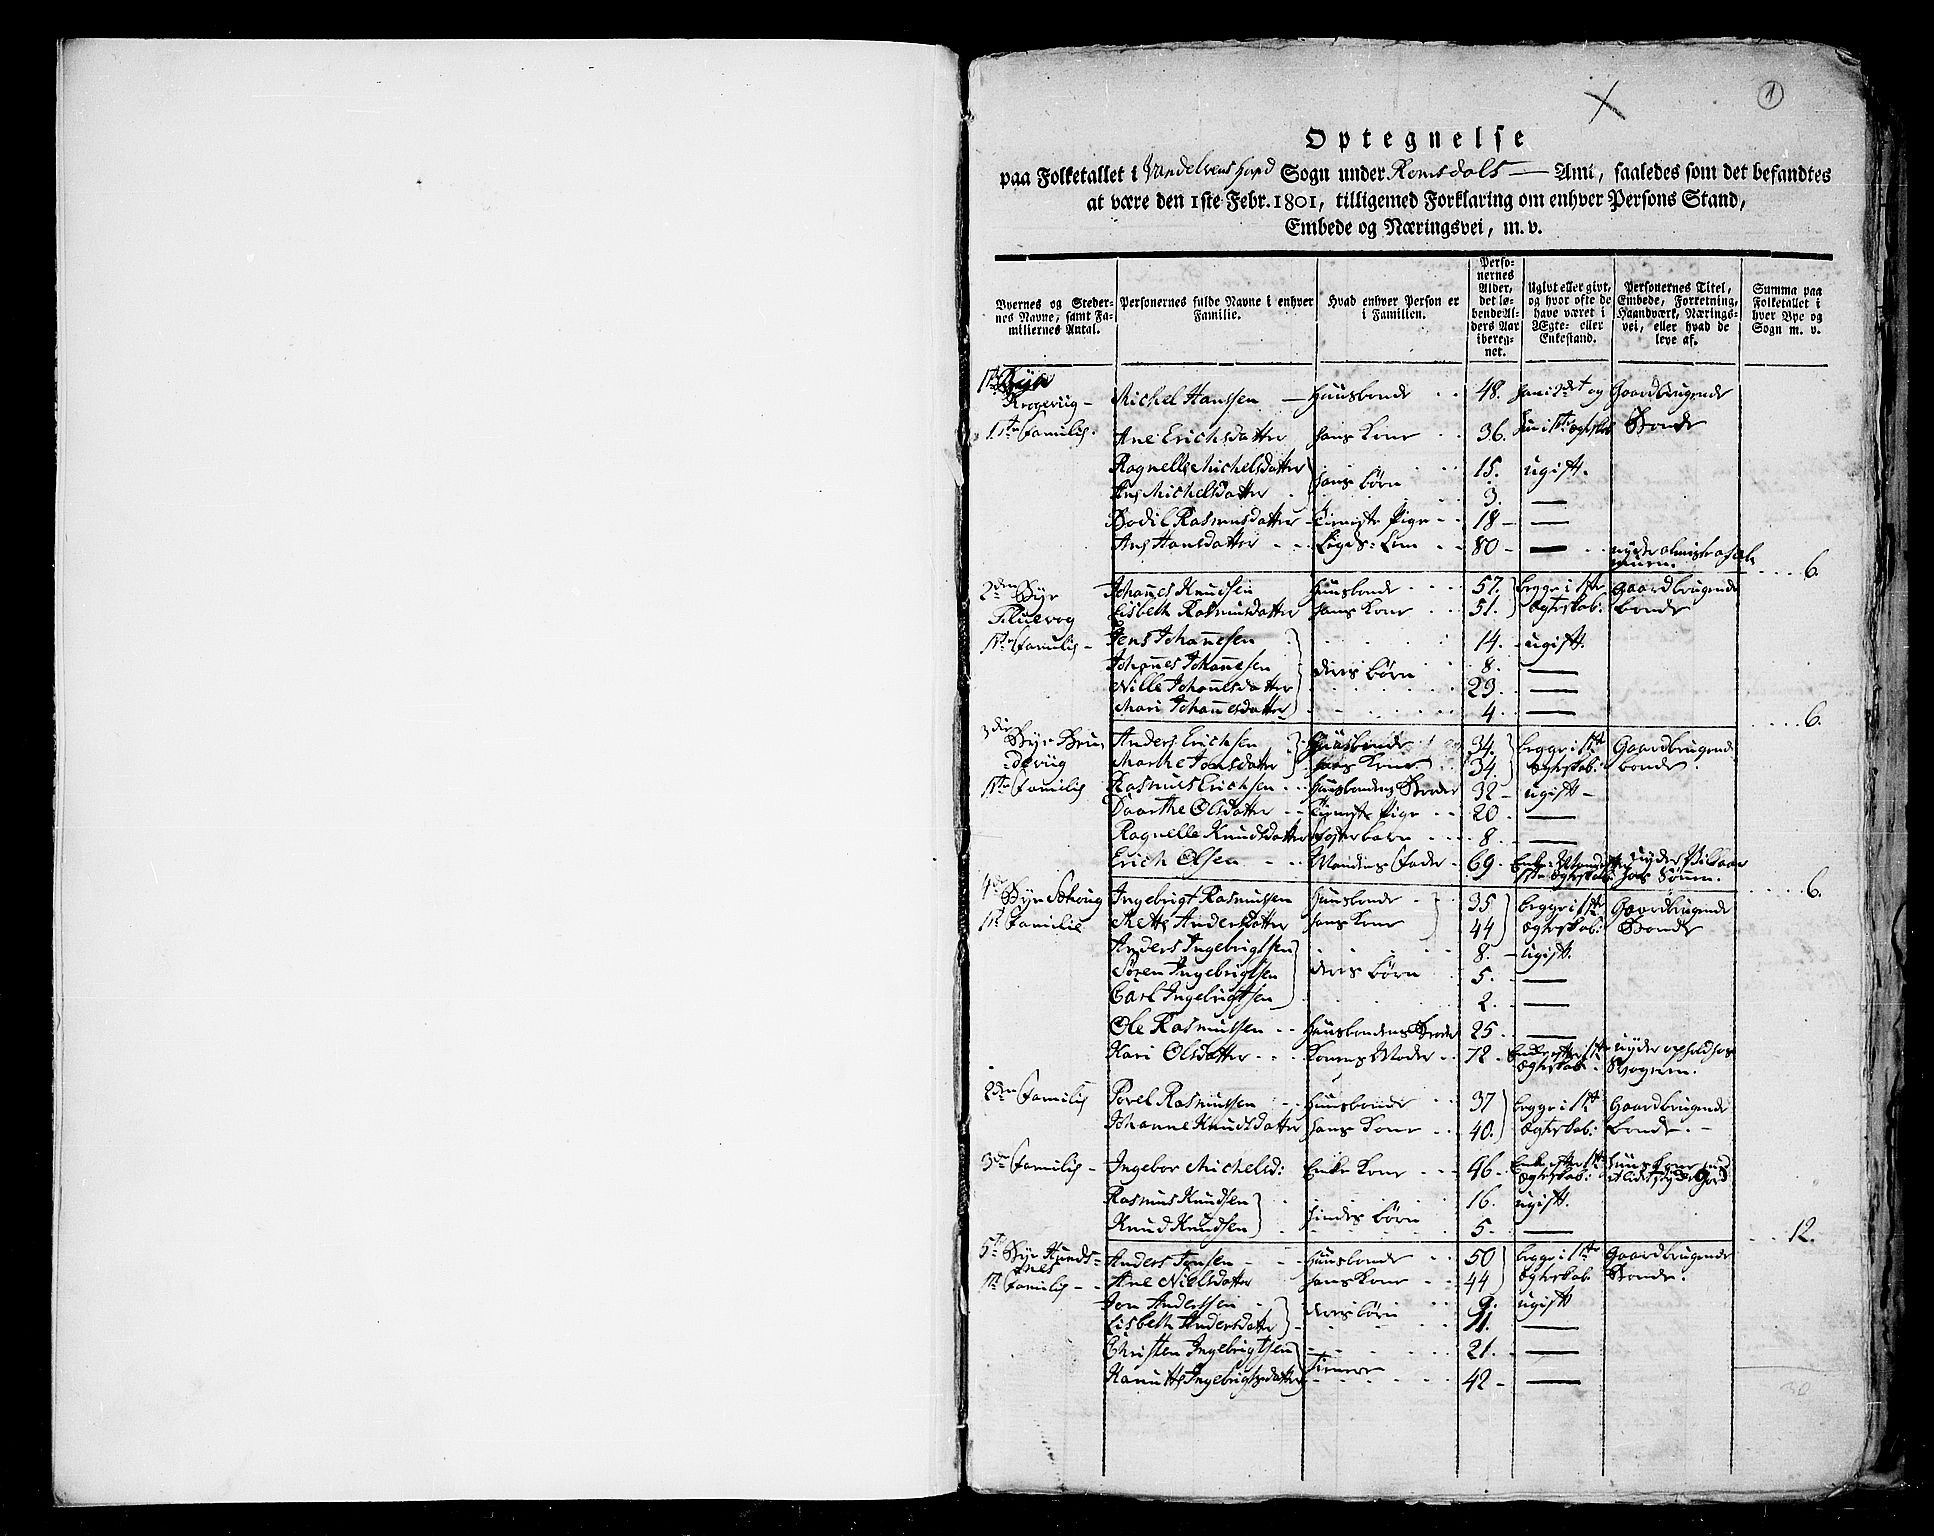 1
Optegnelse
paa Folketallet i Vandelvens Sogn under Romsdals Amt, saaledes som det befandtes
at være den 1ste Febr. 1801, tilligemed Forklaring om enhver Persons Stand,
Embede og Næringsvei, m. v.
Byernes og Stedernes Navne, samt Familiernes Antal. Personernes fulde Navne i enhver Familie. Hvad enhver Person er i Familien. Personernes Alder, det løbende Alders Aar iberegnet. Ugivt eller givt, og hvor ofte de have været i Ægte- eller Enkestand. Personernes Titel, Embede, Forretning, Haandværk, Næringsvei, eller hvad de leve af. Summa paa Folketallet i hver Bye og Sogn m. v.
1te Bye
Krogevig - Michel Hanssen - Huusbonde 48. han i 2det og Gaardbrugende
1ste Familie. Ane Erichsdatter hans Kone 36. hun i 1ste Bonde
Ragnelle Michelsdatter 15. ugift.
hans børn
Ane Michelsdatter 3. —
Bodil Rasmusdatter - Tieniste Pige 18 - —
Ane Hansdatter Legds-Lem 80 - — nyder almisse af
6.
2den Bye Johanes Knudsen Huusbonde 57. begge i 1ste Gaardbrugende
Fluevog Lisbeth Rasmusdatter hans Kone 51. Ægteskab: bonde
1ste Familie - Jens Johanesen 14. - ugift.
Johanes Johanesen 8. —
deres børn
Nille Johanesdatter 29. —
Mari Johanesdatter 4 —
6.
3die Bye Brun- Anders Erichsen Huusbonde 34. begge i 1ste Gaardbrugende
devig Marthe Jonsdatter hans Kone 34. Ægteskab: bonde.
1ste Familie Rasmus Erichsen Huusbondens Broder 32 - ugift -
Daarthe Olsdatter Tieniste Pige 20 —
Ragnelle Knudsdatter Fosterbarn 8 —
Erich Olsen Mandens Fader 69. Enke Mand efter nyder Vilkaar
1ste Ægteskab: hos Sønnen.
6.
4de Bye Schoug Ingebrigt Rasmussen Huusbonde 35 begge i 1ste Gaardbrugende
1ste Familie Mette Andersdatter hans Kone 44 Ægteskab: Bonde
Anders Ingebrigtsen 8. - ugift.
Søren Ingebrigtsen deres børn 5. —
Carl Ingebrigtsen 2. —
Ole Rasmussen Huusbondens Broder 25. —
Kari Olsdatter Konens Moder 72 - Enke efter 1ste nyder ophold hos
Ægteskab
2den Familie Povel Rasmussen Huusbonde 37 begge i 1ste Gaardbrugende
Johanne Knudsdatter hans Kone 40. Ægteskab: bonde. -
3die Familie - Ingebor Michelsd: Enke Kone 46 - Enke efter 1ste
Ægteskab:
Rasmus Knudsen 16. ugift.
hindes børn
Knud Knudsen 5. —
12.
5te Bye Hunds- Anders Jonsen Huusbonde 50 begge i 1ste Gaardbrugende
nes
1ste Familie - Ane Nielsdatter hans Kone 44 Ægteskab Bonde.
Jon Anderssen 9. ugift
deres børn
Lisbeth Andersdatter 11. —
Christen Ingebrigtsen 21. —
Tienere
Hanutte Ingebrigtsdatter 42 - —
30